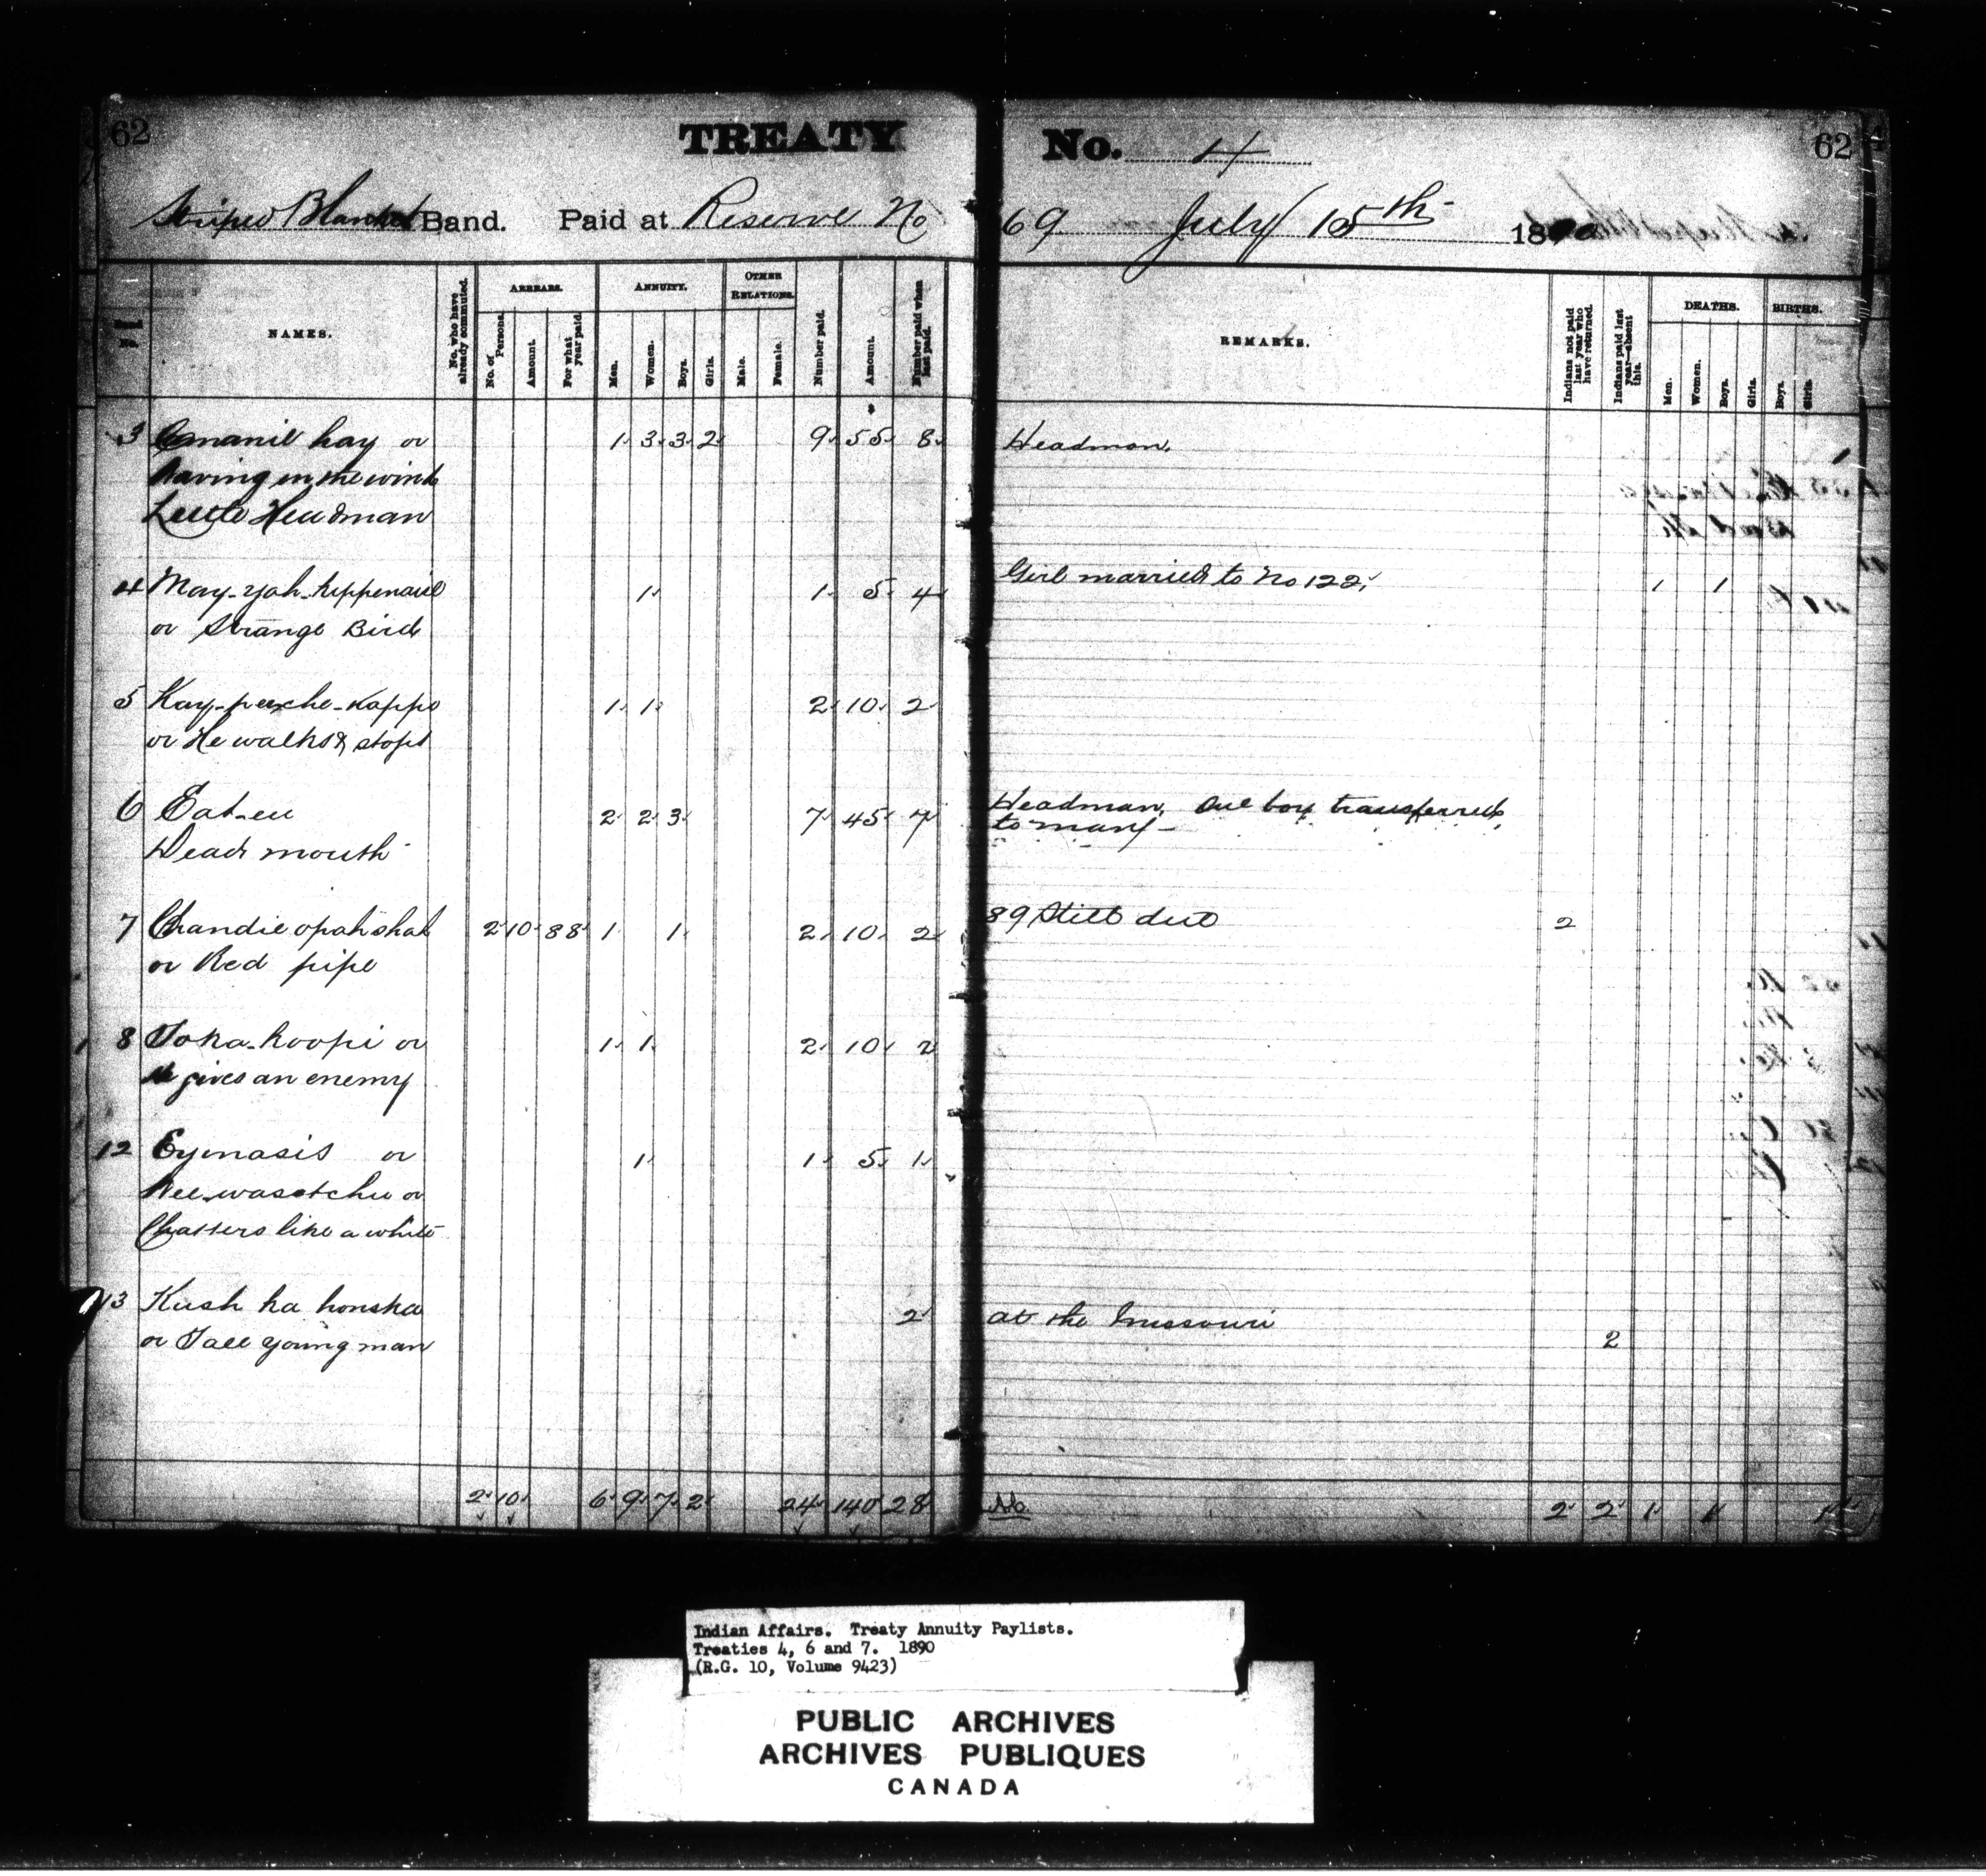 62 TREATY No. 4 62
Striped Blanket Band. Paid at Reserve No 69 July 15th 1890
Band No.
NAMES.
No. who have already commuted.
ARREARS.
No. of Persons.
Amount.
For what year paid.
ANNUITY.
Men.
Women.
Boys.
Girls.
OTHER RELATIONS.
Male.
Female.
Number paid.
Amount.
Number paid when last paid.
REMARKS.
Indians not paid last year who have returned.
Indians paid last year—absent this.
DEATHS.
Men.
Women.
Boys.
Girls.
BIRTHS.
Boys.
Girls.
3 hay or 1 3 3 2 9 55 8 Headman. 1
having in the wind
Little Headman
4 May-yah- 1 1 5 4 Girl married to No 122, 1 1
or Strange Bird
5 Kay-peeche-kappo 1 1 2 10 2
or He walks & stops
6 Eat-eu 2 2 3 7 45 7 Headman, One boy transferred
to man
Dead mouth
7 Chandie opahshah 2 10 88 1 1 2 10 2 89 Still due 2
or Red pipe
8 Toka-koopi or 1 1 2 10 2
He gives an enemy
12 Eyonasis or 1 1 5 1
Nee-wasetchu or
Chatters like a white
13 Kush ka honska 2 at the Missouri 2
or Tall young man
2 10 6 9 7 2 24 140 28 2 2 1 1 1
Indian Affairs. Treaty Annuity Paylists.
Treaties 4, 6 and 7. 1890
(R.G. 10, Volume 9423)
PUBLIC ARCHIVES
ARCHIVES PUBLIQUES
CANADA